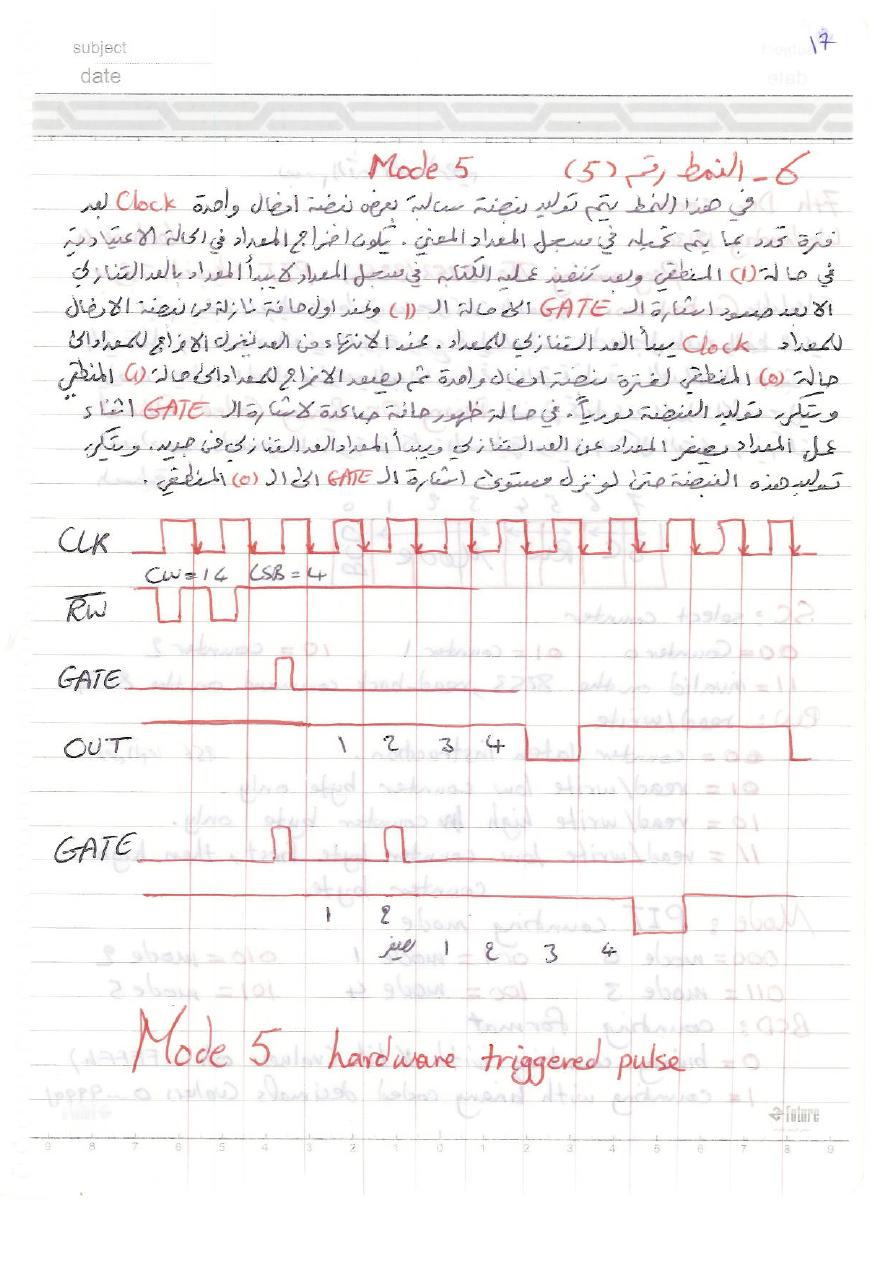 subject
date
17
6 - النمط رقم (5) Mode 5
في هذا النمط يتم توليد نبضة سالبة بعرض نبضة ادخال واحدة Clock بعد
فترة تحدد بما يتم تحميله في مسجل المعداد المعني. يكون اخراج المعداد في الحالة الاعتيادية
في حالة (1) المنطقي وبعد تنفيذ عملية الكتابة في مسجل المعداد لا يبدأ المعداد بالعد التنازلي
الا بعد صعود اشارة الـ GATE الى حالة الـ (1) وعند اول حافة نازلة من نبضة الادخال
للمعداد Clock يبدأ العد التنازلي للمعداد. عند الانتهاء من العد ينزل الاخراج للمعداد الى
حالة (0) المنطقي لفترة نبضة ادخال واحدة ثم يصعد الاخراج للمعداد الى حالة (1) المنطقي
ويتكرر توليد النبضة دورياً. في حالة ظهور حافة صاعدة لاشارة الـ GATE اثناء
عمل المعداد يصفر المعداد عن العد التنازلي ويبدأ المعداد العد التنازلي من جديد. ويتكرر
توليد هذه النبضة حتى لو نزل مستوى اشارة الـ GATE الى الـ (0) المنطقي.
CLK
CW=14 LSB=4
RW
GATE
OUT 1 2 3 4
GATE
1 2
يصفر 1 2 3 4
Mode 5 hardware triggered pulse
future
9 8 7 6 5 4 3 2 1 0 1 2 3 4 5 6 7 8 9